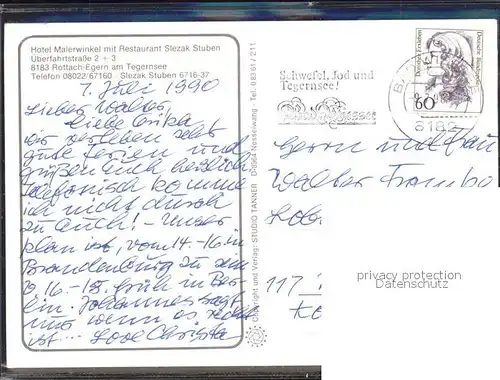 Hotel Malerwinkel mit Restaurant Slezak Stuben
Überfahrtstraße 2 + 3
8183 Rottach-Egern am Tegernsee
Telefon 08022/67160 Slezak Stuben 6716-37
7. Juli 1990
Lieber Walter,
Liebe Erika
wir verleben sehr
gute Ferien und
grüßen Euch herzlich.
Telefonisch komme
ich nicht durch
zu Euch! - Unser
Plan ist, vom 14.-16. in
Brandenburg zu sein
16.-18. früh in Ber-
lin. Johannes sagt
nur wenn es
ist ... Love Christa
Copyright und Verlag: STUDIO TANNER D-8964 Nesselwang · Tel. 08361/211
Schwefel, Jod und
Tegernsee!
Dorothea Erxleben
Deutsche Bundespost
60
8182
Herrn und Frau
Walter
117
privacy protection
Datenschutz